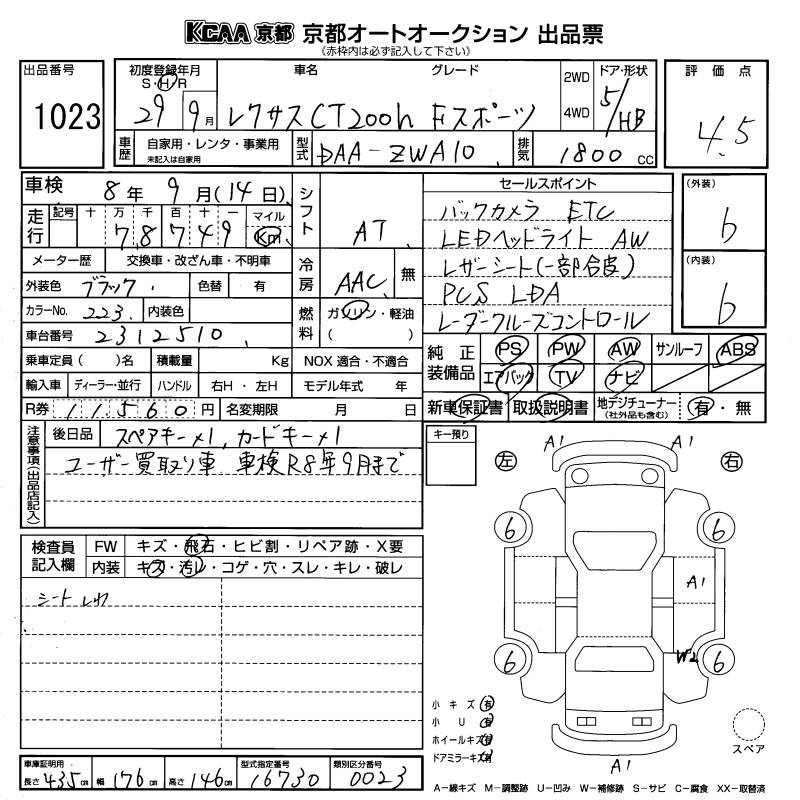 KCAA 京都 京都オートオークション 出品票
(赤枠内は必ず記入して下さい)
出品番号 1023
初度登録年月 S・H・R 29 9月
車名 グレード レクサスCT200h Fスポーツ
2WD 4WD
ドア・形状 5/HB
評価点 4.5
車歴 自家用・レンタ・事業用 未記入は自家用
型式 DAA-ZWA10
排気 1800 CC
車検 8年 9月(14日)
走行 記号 十 万 千 百 十 一 マイル Km
78749
シフト AT
メーター歴 交換車・改ざん車・不明車
外装色 ブラック 色替 有
カラーNo. 223 内装色
車台番号 2312510
冷房 AAC 無
燃料 ガソリン・軽油 ( )
乗車定員 ( )名 積載量 Kg NOX 適合・不適合
輸入車 ディーラー・並行 ハンドル 右H・左H モデル年式 年
R券 11,560円 名変期限 月 日
セールスポイント
バックカメラ ETC
LEDヘッドライト AW
レザーシート(一部合皮)
PCS LDA
レーダークルーズコントロール
(外装) 6
(内装) 6
純正装備品 PS PW AW サンルーフ ABS
エアバック TV ナビ
新車保証書 取扱説明書 地デジチューナー (社外品も含む) 有・無
注意事項(出品店記入)
後日品 スペアキー×1, カードキー×1
ユーザー買取り車 車検R8年9月まで
キー預り
左 右
A1 A1
6 6
A1
6 W2 6
A1
スペア
検査員記入欄 FW キズ・飛石・ヒビ割・リペア跡・X要
内装 キズ・汚レ・コゲ・穴・スレ・キレ・破レ
小キズ 有
小U 有
ホイールキズ 有
ドアミラーキズ 有
車庫証明用 長さ 435cm 幅 176cm 高さ 146cm
型式指定番号 16730
類別区分番号 0023
A-線キズ M-調整跡 U-凹み W-補修跡 S-サビ C-腐食 XX-取替済